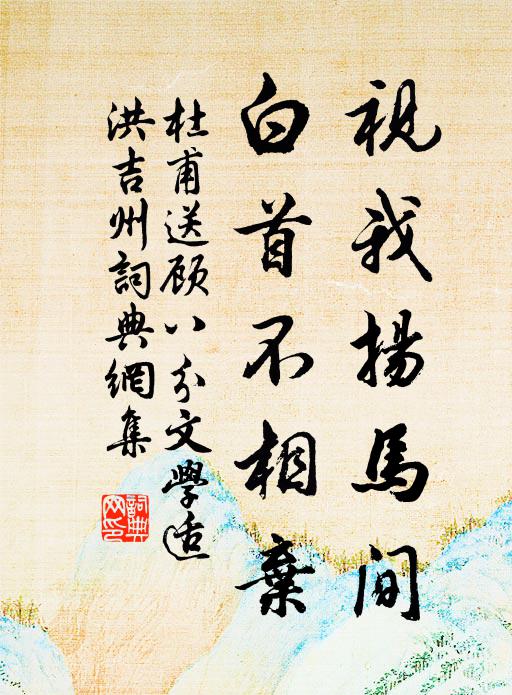 視我揚馬間
白首不相棄
杜甫送顾八分文學适
洪吉州詞典網集
詞典
网印